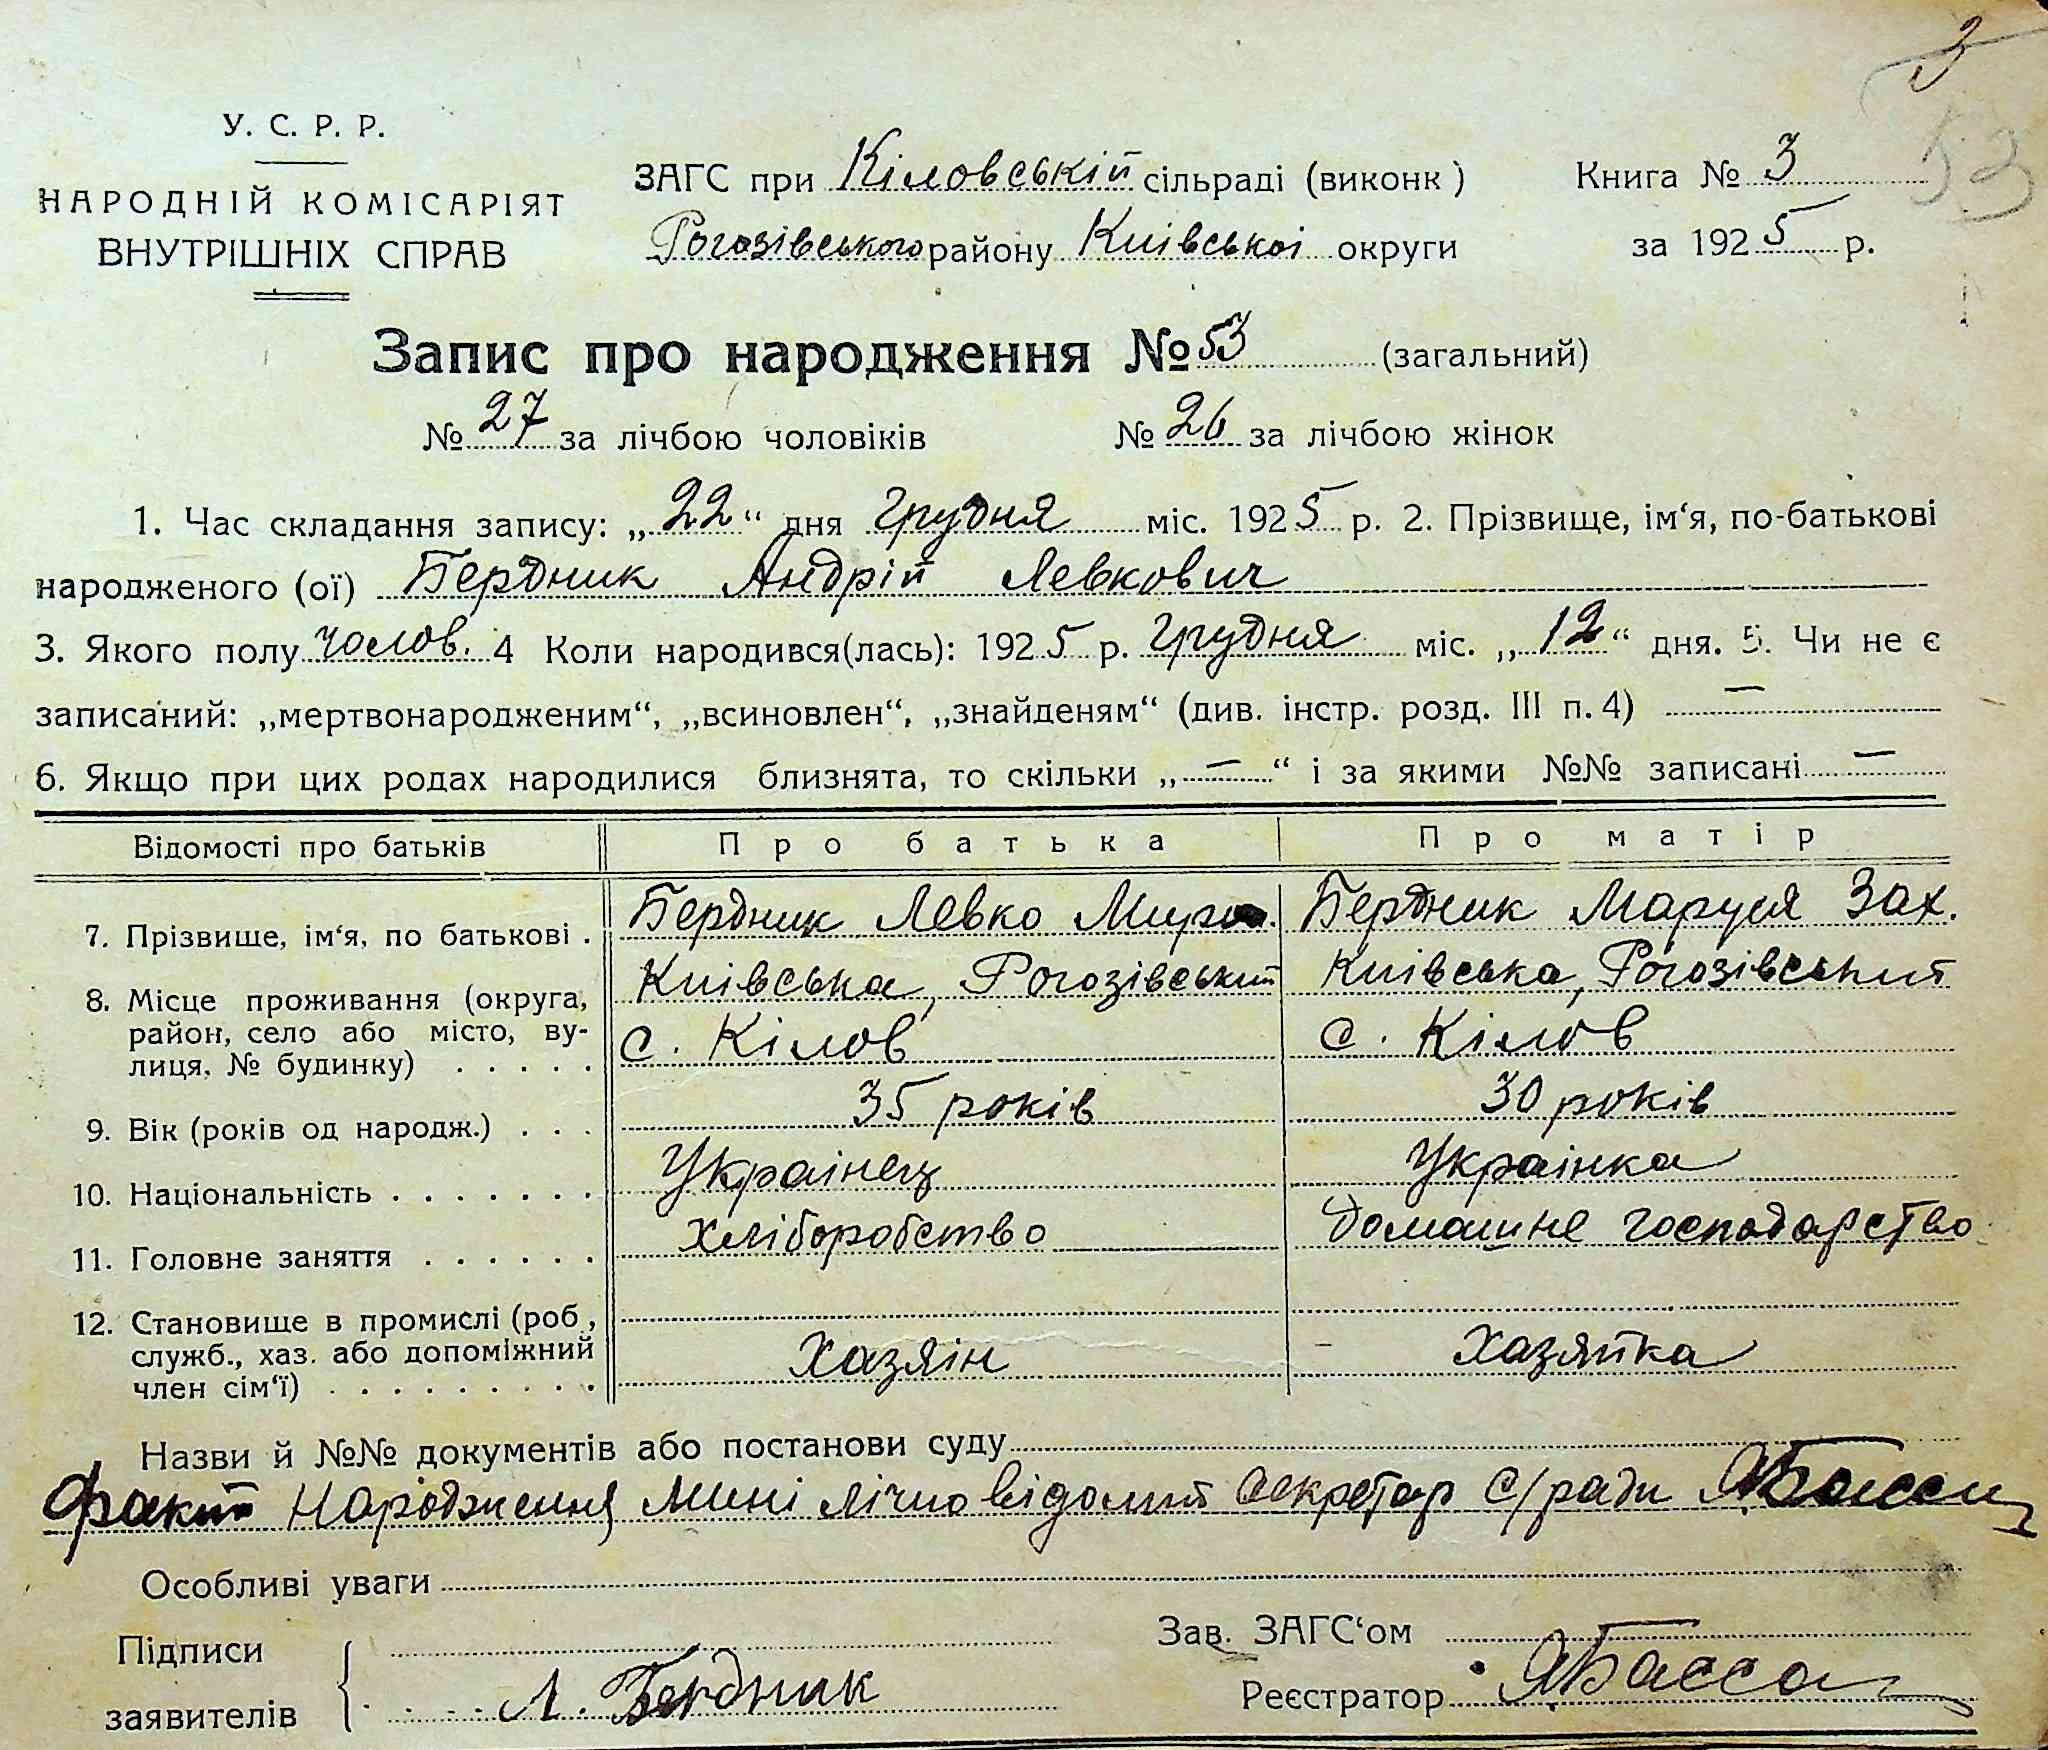 3
53
У. С. Р. Р.
НАРОДНІЙ КОМІСАРІЯТ
ВНУТРІШНІХ СПРАВ
ЗАГС при Кіловській сільраді (виконк )
Рогозівського району Київської округи
Книга № 3
за 1925 р.
Запис про народження № 53 (загальний)
№ 27 за лічбою чоловіків № 26 за лічбою жінок
1. Час складання запису: „22“ дня грудня міс. 1925 р. 2. Прізвище, ім‘я, по-батькові
народженого (ої) Бердник Андрій Левкович
3. Якого полу чолов. 4 Коли народився(лась): 1925 р. грудня міс. „12“ дня. 5. Чи не є
записаний: „мертвонародженим“, „всиновлен“, „знайденям“ (див. інстр. розд. III п. 4) —
6. Якщо при цих родах народилися близнята, то скільки „—“ і за якими №№ записані —
Відомості про батьків Про батька Про матір
7. Прізвище, ім‘я, по батькові . Бердник Левко Бердник Маруся Зах.
8. Місце проживання (округа, район, село або місто, вулиця, № будинку) . . . . . Київська, Рогозівський с. Кілов Київська, Рогозівський с. Кілов
9. Вік (років од народж.) . . . 35 років 30 років
10. Національність . . . . . . . Украінец Украінка
11. Головне заняття . . . . . . хліборобство домашне господарство
12. Становище в промислі (роб , служб., хаз. або допоміжний член сім‘ї) . . . . . . . . . Хазяін Хазяйка
Назви й №№ документів або постанови суду
факт народження мині лічно відомий секретар с/ради ЯБасса
Особливі уваги
Підписи
заявителів
Л. Бердник
Зав. ЗАГС‘ом
Реєстратор ЯБасса